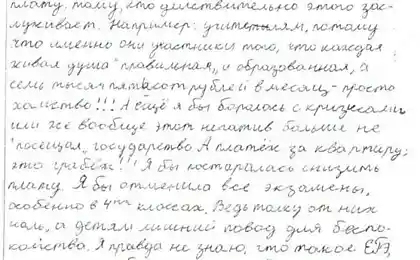 плату, тому, кто действительно этого зас-
луживает. Например: учителям, потому
что именно они участники того, что каждая
живая душа "правильная" и образованная, а
семь тысяч пятьсот рублей в месяц - просто
хамство!!! А ещё я бы боролась с кризисами
или же вообще этот негатив больше не
посещал, государство. А платёж за квартиру;
это грабёж!!! Я бы постаралась снизить
плату. Я бы отменила все экзамены,
особенно в 4ых классах. Ведь толку от них
мало, а детям лишний повод для беспо-
койства. Я правда не знаю, что такое ЕГЭ,